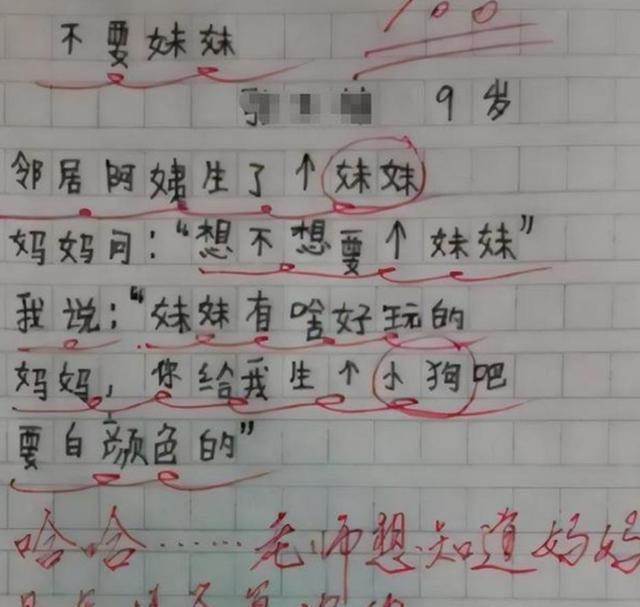 100
不要妹妹
9岁
邻居阿姨生了个妹妹
妈妈问：“想不想要个妹妹”
我说：“妹妹有啥好玩的
妈妈，你给我生个小狗吧
要白颜色的”
哈哈……老师想知道妈妈